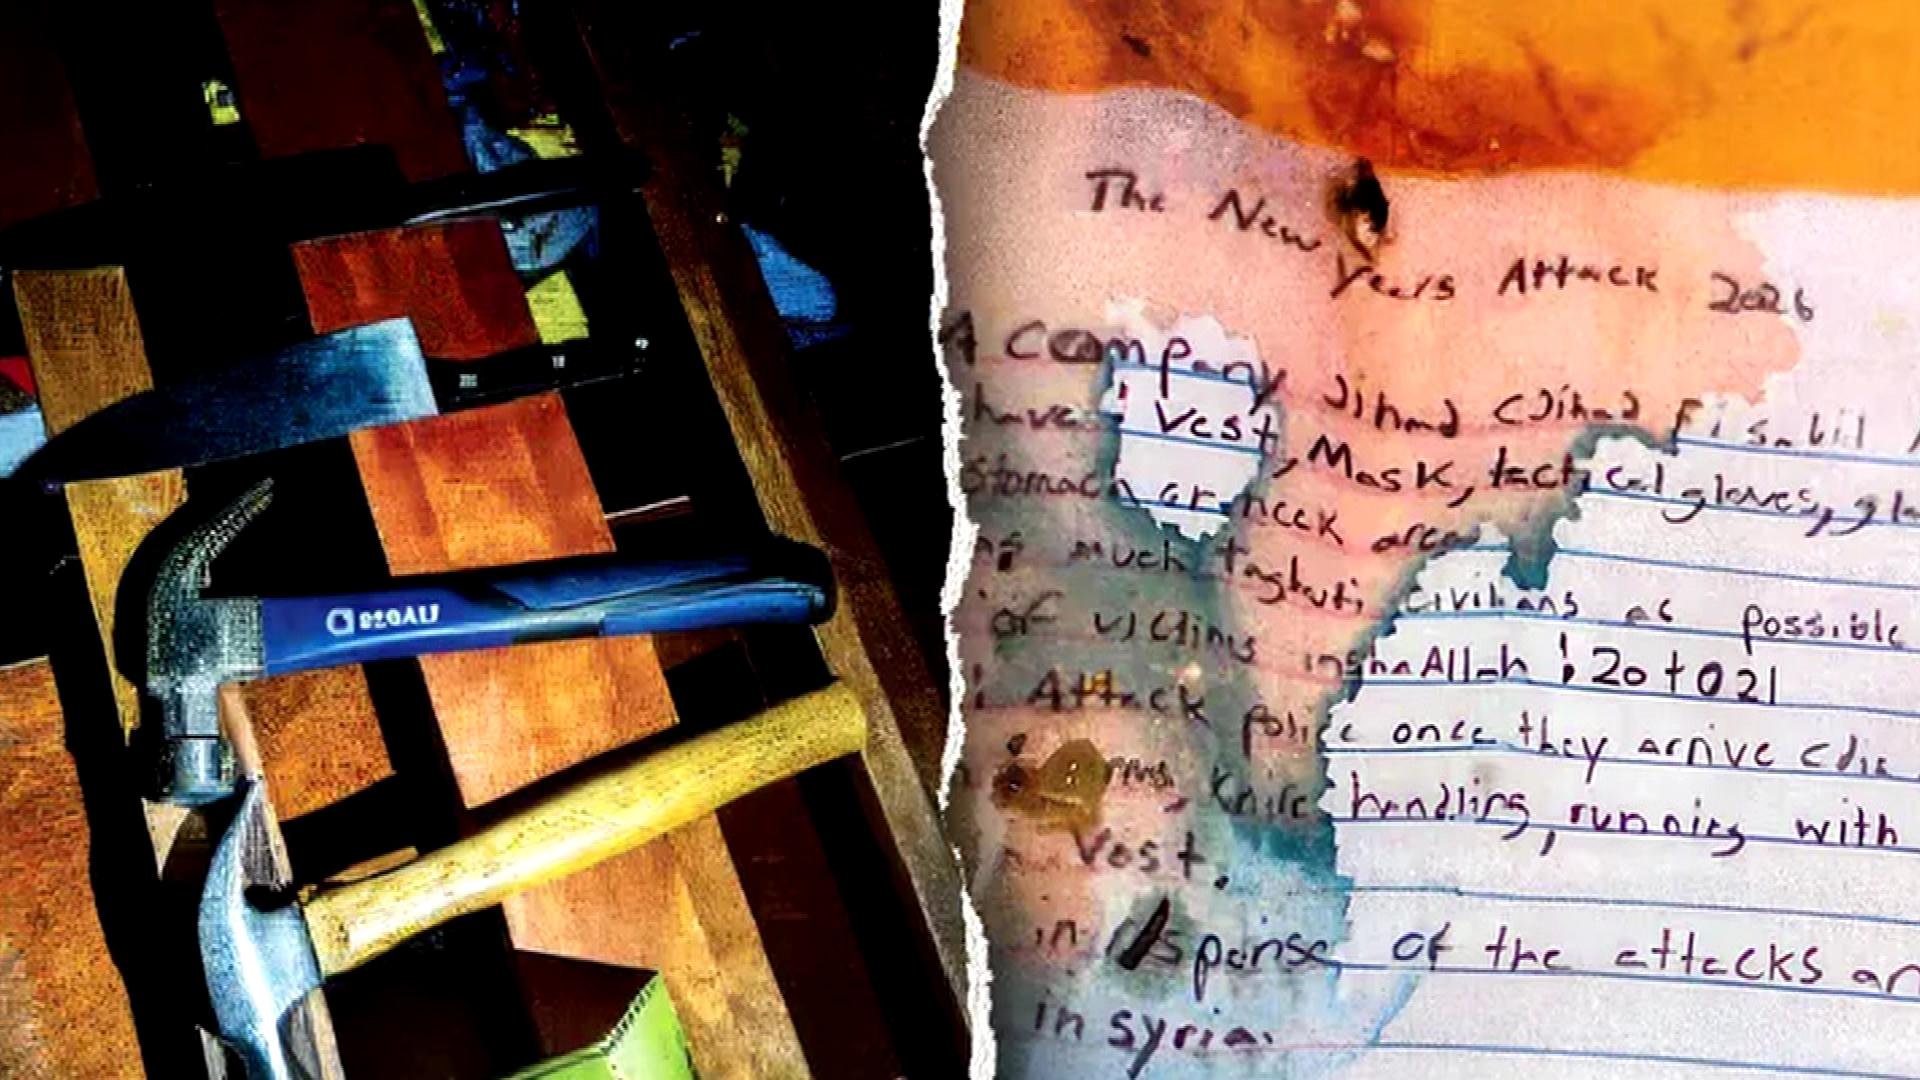 The New Years Attack 2026
A company Jihad (Jihad Fi sabil
have: Vest, Mask, tactical gloves,
stomach or neck area
as much taghuti civilians as possible
of victims inshaAllah : 20 to 21
: Attack police once they arrive
Knife handling, running with
Vest.
in response of the attacks
in Syria.